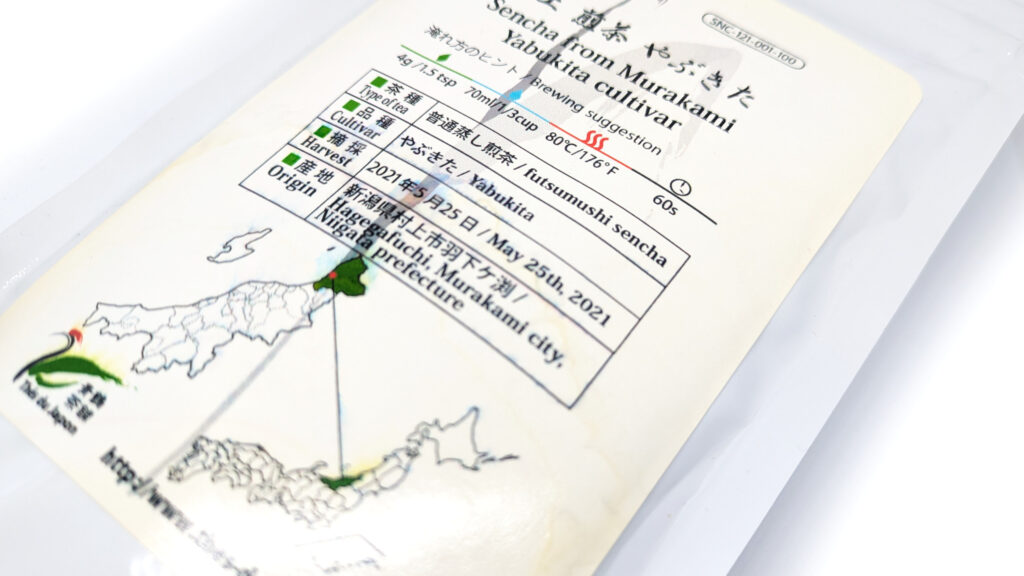 SNC-121-001-100
煎茶 やぶきた
Sencha from Murakami
Yabukita cultivar
淹れ方のヒント / Brewing suggestion
4g/1,5 tsp 70ml/1/3cup 80℃/176°F 60s
茶種 普通蒸し煎茶 / futsumushi sencha
Type of tea
品種 やぶきた / Yabukita
Cultivar
摘採 2021年5月25日 / May 25th, 2021
Harvest
産地 新潟県村上市羽下ケ渕 /
Origin Hagegafuchi, Murakami city,
Niigata prefecture
Thés du Japon
http://www.